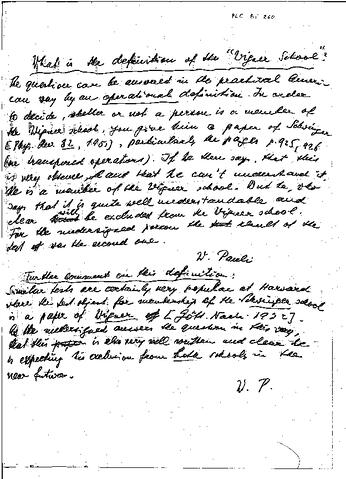 PLC Bi 260
What is the definition of the "Wigner School"?
The question can be answered in the practical Ameri-
can way by an operational definition. In order
to decide, whether or not a person is a member of
the Wigner school, you give him a paper of Schwinger
[Phys. Rev 82, 1951], particularly the pages p. 925, 926
(on transposed operations). If he then says, that this
is very obscure and that he can't understand it,
he is a member of the Wigner school. But he, who
says that it is quite well understandable and
clear will be excluded from the Wigner school.
For the undersigned person the result of the
test was the second one.
W. Pauli
Further comment on this definition:
Similar tests are certainly very popular at Harvard
where the test object for membership of the Schwinger school
is a paper of Wigner [Gött. Nach. 1932].
As the undersigned answers the question in this way,
that this is also very well written and clear he
is expecting his exclusion from both schools in the
near future.
W. P.